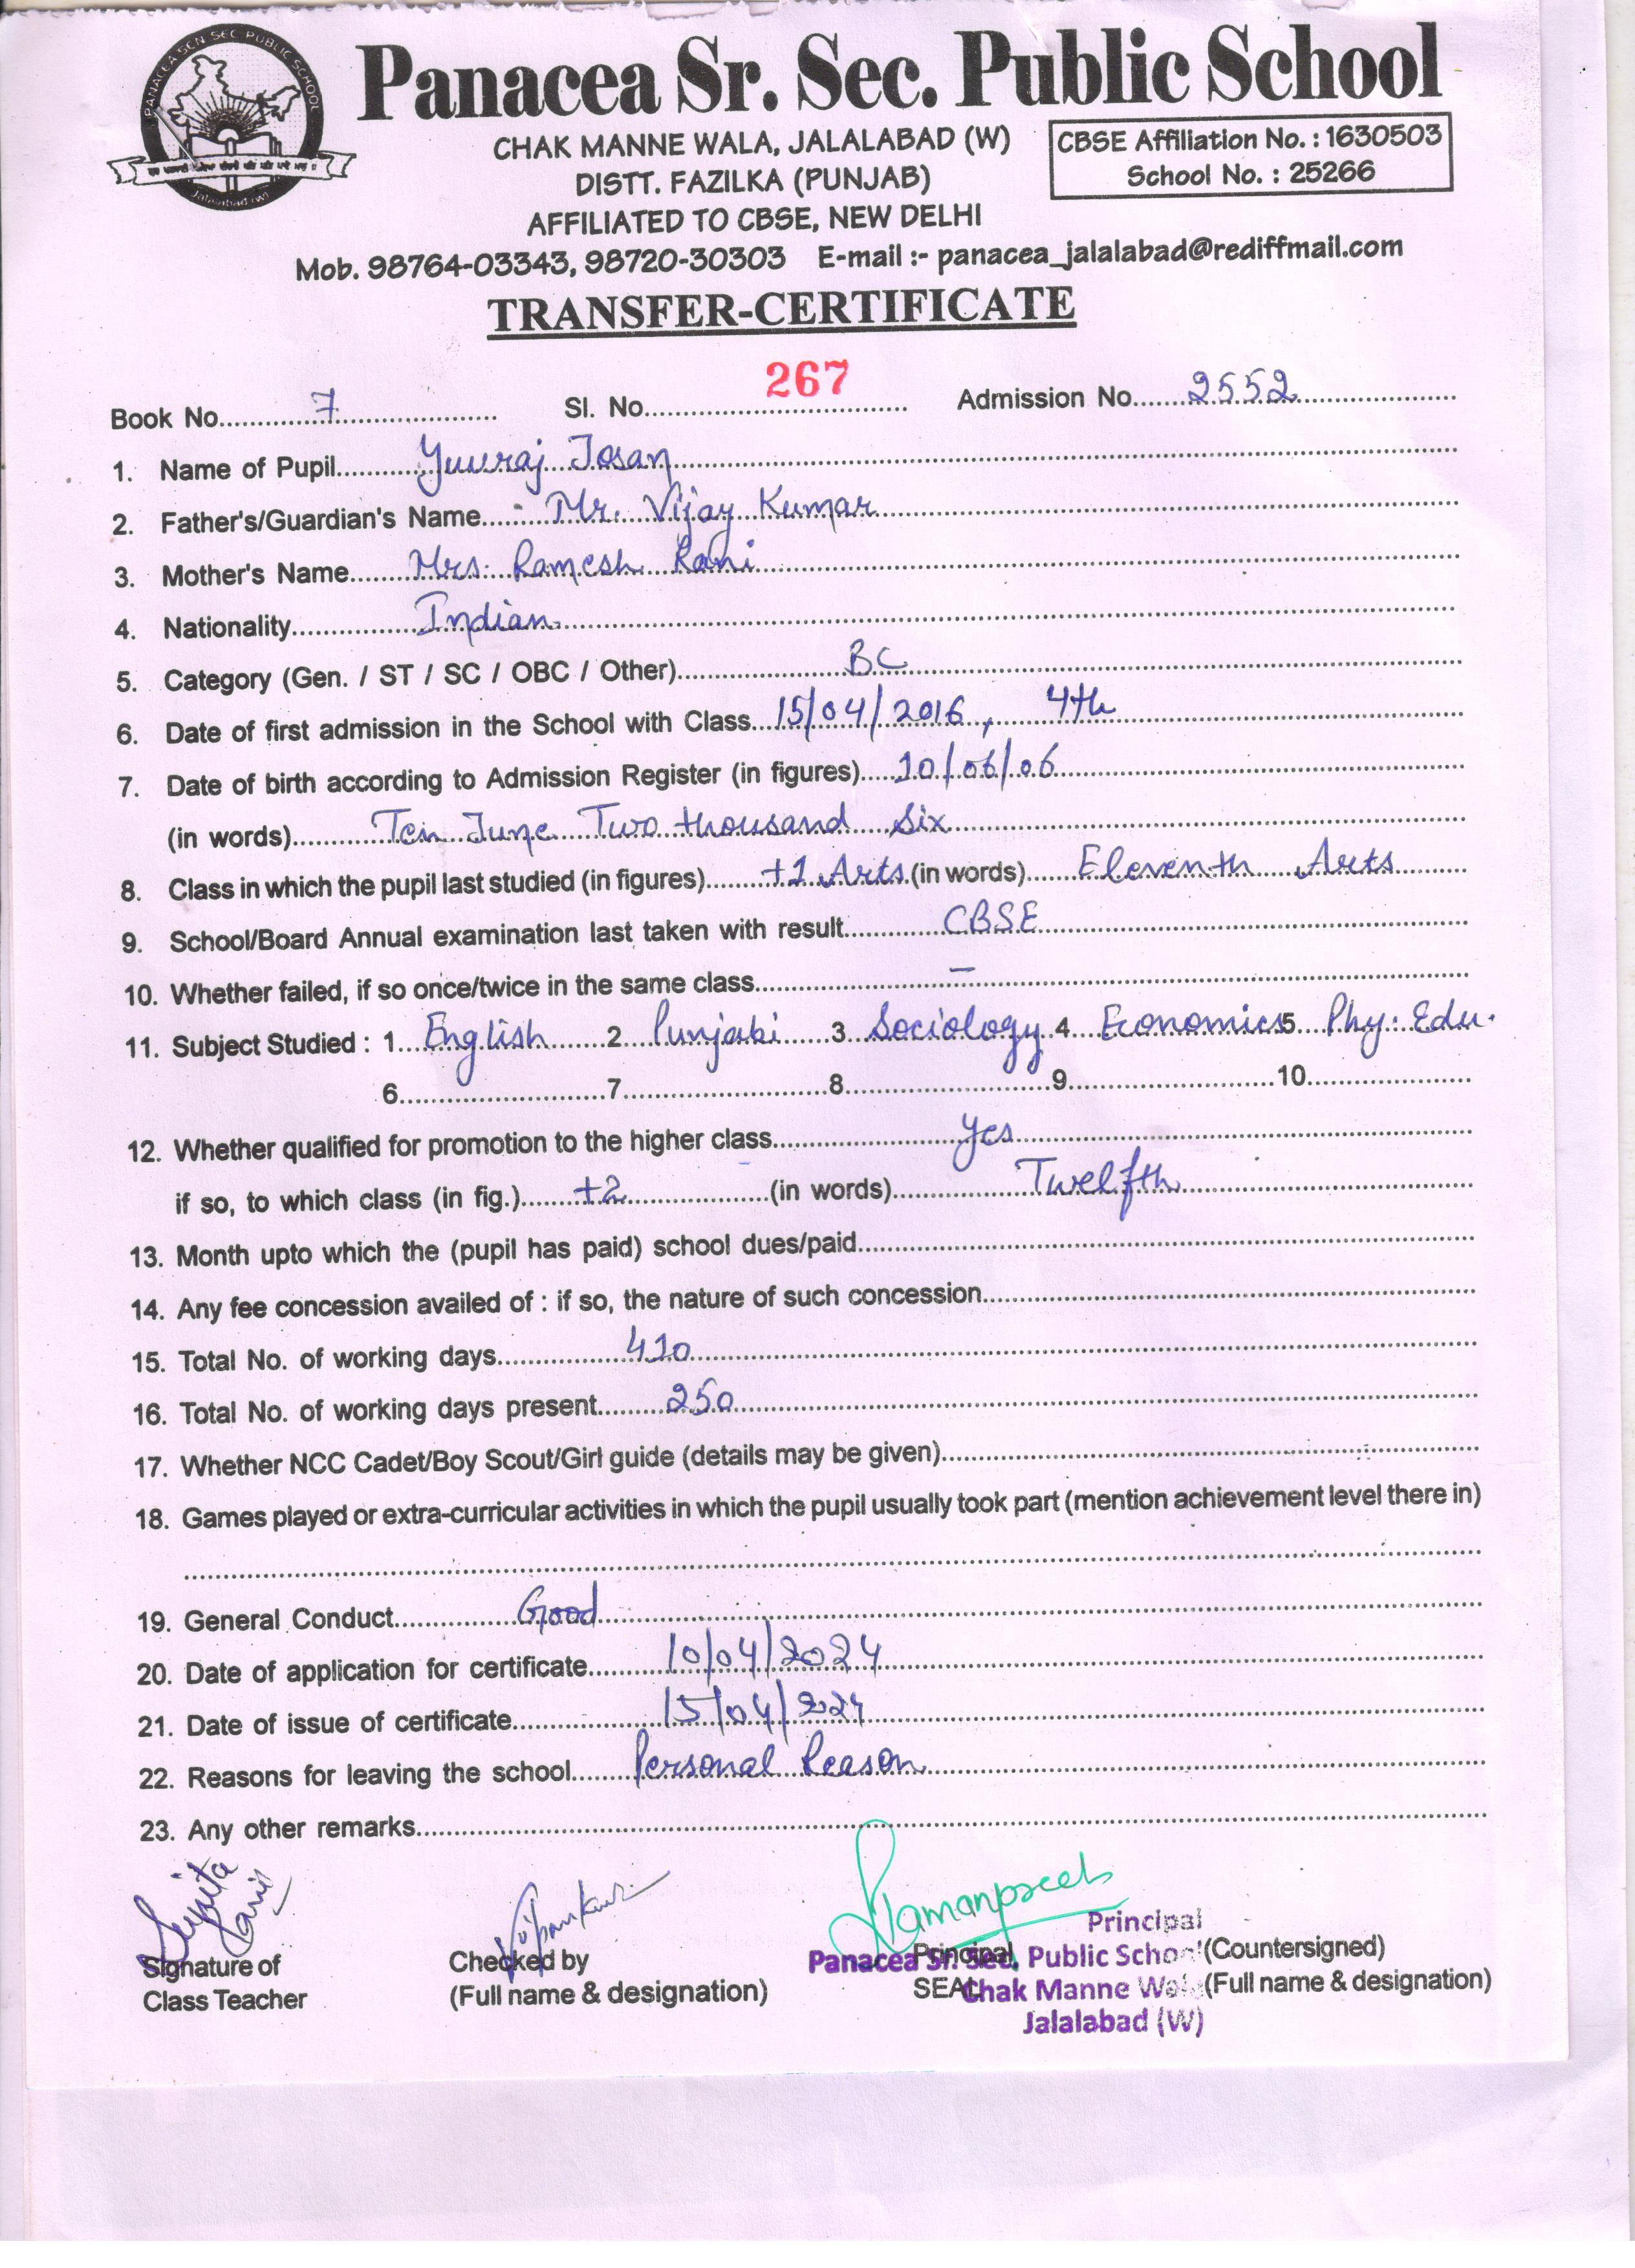 PANACEA SEN SEC PUBLIC SCHOOL
Jalalabad (W)
Panacea Sr. Sec. Public School
CHAK MANNE WALA, JALALABAD (W)
DISTT. FAZILKA (PUNJAB)
AFFILIATED TO CBSE, NEW DELHI
CBSE Affiliation No. : 1630503
School No. : 25266
Mob. 98764-03343, 98720-30303 E-mail :- panacea_jalalabad@rediffmail.com
TRANSFER-CERTIFICATE
Book No. 7 Sl. No. 267 Admission No. 2552
1. Name of Pupil Yuvraj Josan
2. Father's/Guardian's Name Mr. Vijay Kumar
3. Mother's Name Mrs. Ramesh Rani
4. Nationality Indian
5. Category (Gen. / ST / SC / OBC / Other) BC
6. Date of first admission in the School with Class 15/04/2016, 4th
7. Date of birth according to Admission Register (in figures) 10/06/06
(in words) Ten June Two thousand Six
8. Class in which the pupil last studied (in figures) +1 Arts (in words) Eleventh Arts
9. School/Board Annual examination last taken with result CBSE
10. Whether failed, if so once/twice in the same class —
11. Subject Studied : 1 English 2 Punjabi 3 Sociology 4 Economics 5 Phy. Edu.
6 7 8 9 10
12. Whether qualified for promotion to the higher class Yes
if so, to which class (in fig.) +2 (in words) Twelfth
13. Month upto which the (pupil has paid) school dues/paid
14. Any fee concession availed of : if so, the nature of such concession
15. Total No. of working days 410
16. Total No. of working days present 250
17. Whether NCC Cadet/Boy Scout/Girl guide (details may be given)
18. Games played or extra-curricular activities in which the pupil usually took part (mention achievement level there in)
19. General Conduct Good
20. Date of application for certificate 10/04/2024
21. Date of issue of certificate 15/04/2024
22. Reasons for leaving the school Personal Reason
23. Any other remarks
Ramanpreet
Principal
Signature of Checked by Principal (Countersigned)
Panacea Sr. Sec. Public School
Class Teacher (Full name & designation) SEAL (Full name & designation)
Chak Manne Wala
Jalalabad (W)